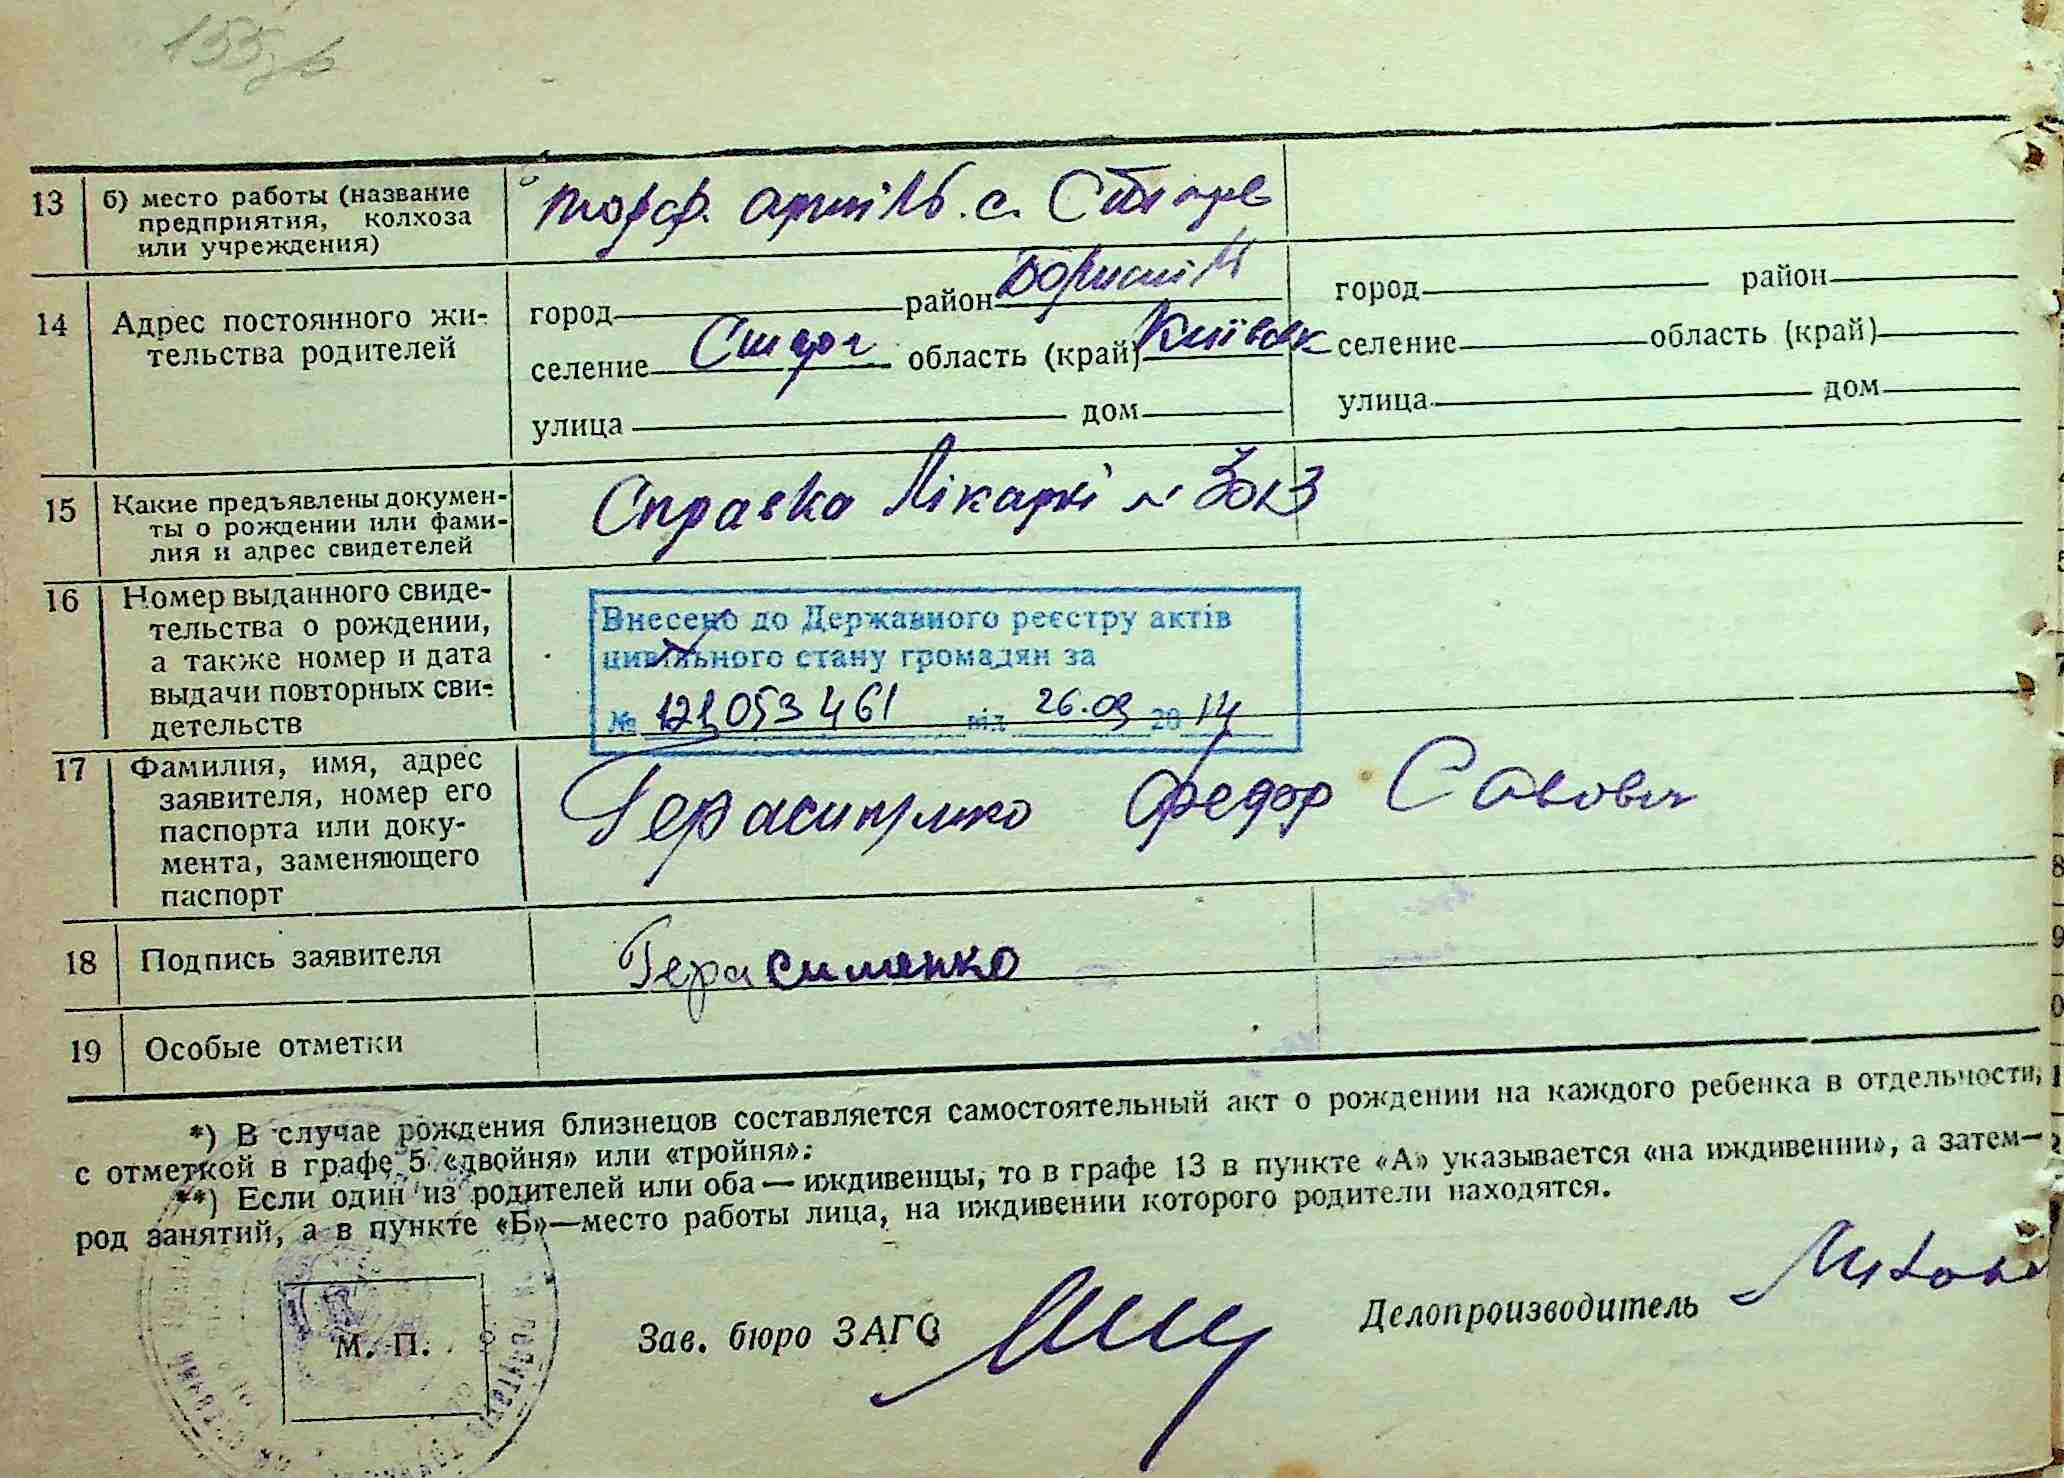 155
13 б) место работы (название
предприятия, колхоза
или учреждения)
с. Старе
14 Адрес постоянного жи-
тельства родителей
город район Бориспіл
селение Старе область (край) Київськ
улица дом
город район
селение область (край)
улица дом
15 Какие предъявлены докумен-
ты о рождении или фами-
лия и адрес свидетелей
Справка Лікарні №
16 Номер выданного свиде-
тельства о рождении,
а также номер и дата
выдачи повторных сви-
детельств
Внесено до Державного реєстру актів
цивільного стану громадян за
№ 121053461 від 26.09 2014
17 Фамилия, имя, адрес
заявителя, номер его
паспорта или доку-
мента, заменяющего
паспорт
Герасименко Федор Савович
18 Подпись заявителя
Герасименко
19 Особые отметки
*) В случае рождения близнецов составляется самостоятельный акт о рождении на каждого ребенка в отдельности,
с отметкой в графе 5 «двойня» или «тройня»:
**) Если один из родителей или оба — иждивенцы, то в графе 13 в пункте «А» указывается «на иждивении», а затем—
род занятий, а в пункте «Б»—место работы лица, на иждивении которого родители находятся.
М. П.
Зав. бюро ЗАГС
Делопроизводитель